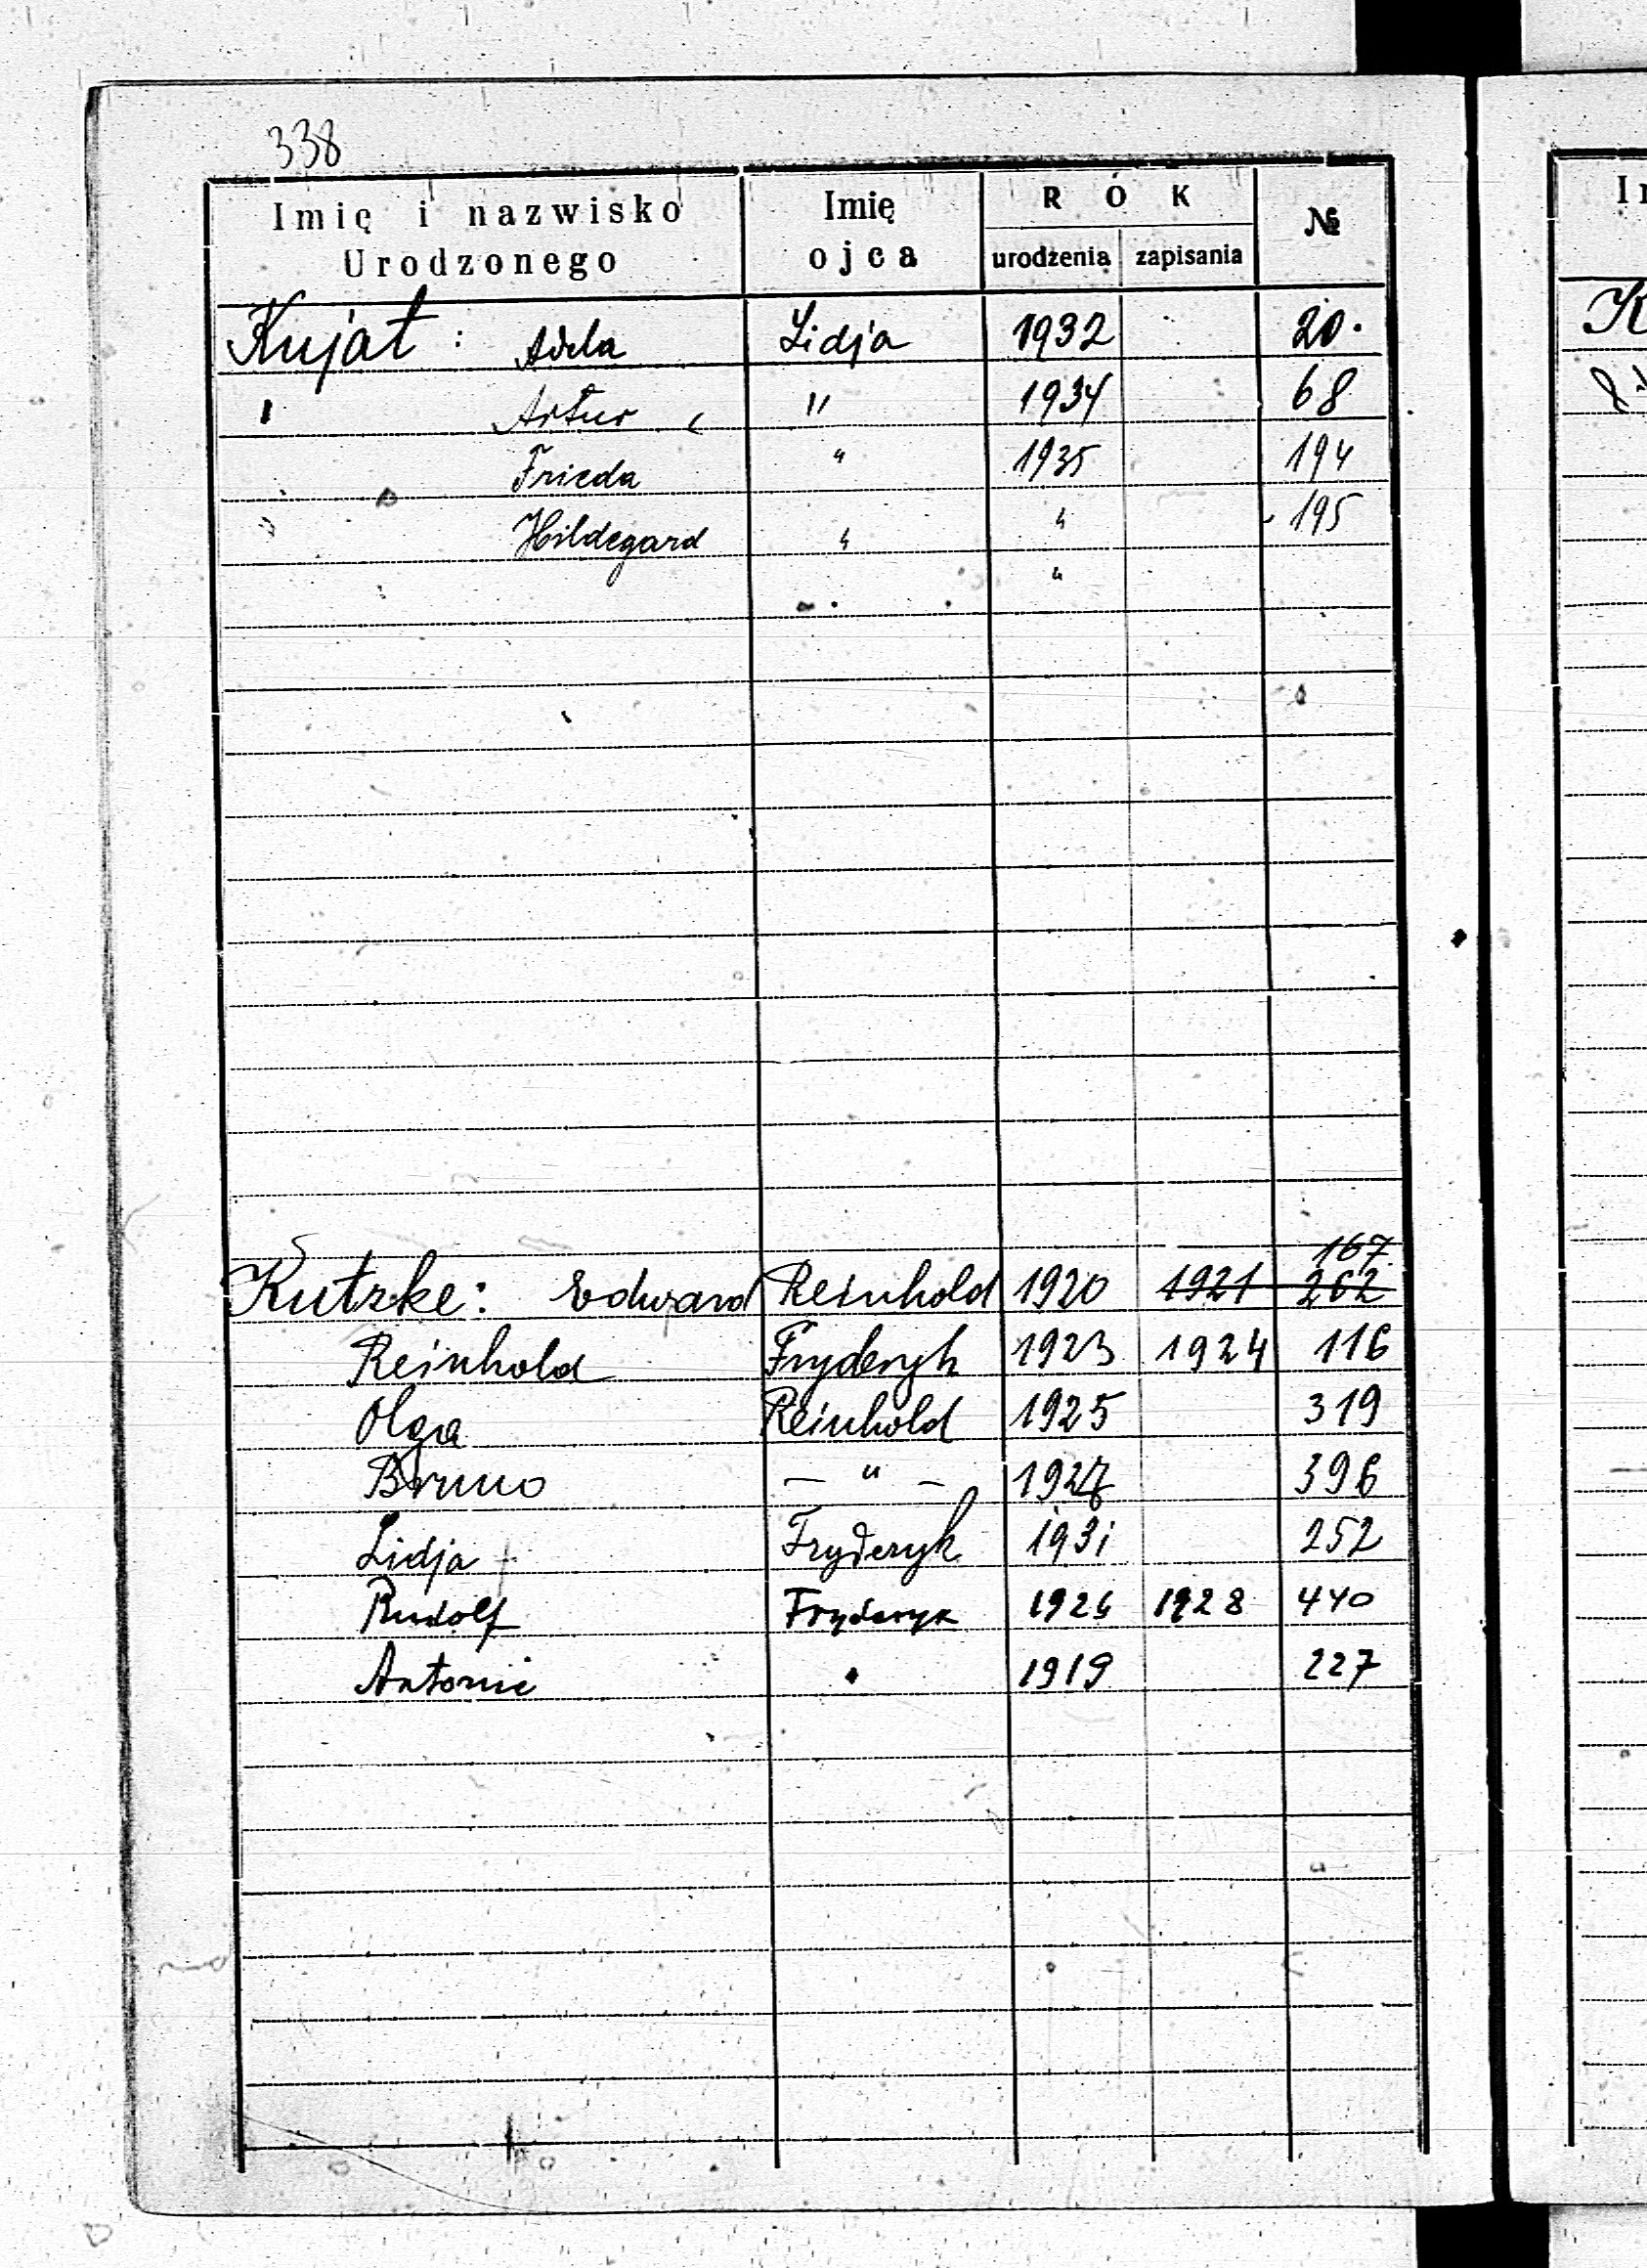 338
Imię i nazwisko Urodzonego Imię ojca RÓK urodzenia zapisania №
Kujat : Adela Lidja 1932 20.
" Artur " 1934 68
Frieda " 1935 194
Hildegard " " 195
"
167
Kutzke: Edward Reinhold 1920 1921 262
Reinhold Fryderyk 1923 1924 116
Olga Reinhold 1925 319
Bruno — " — 396
Lidja Fryderyk 1931 252
Rudolf Fryderyk 1928 440
Antonie " 1919 227